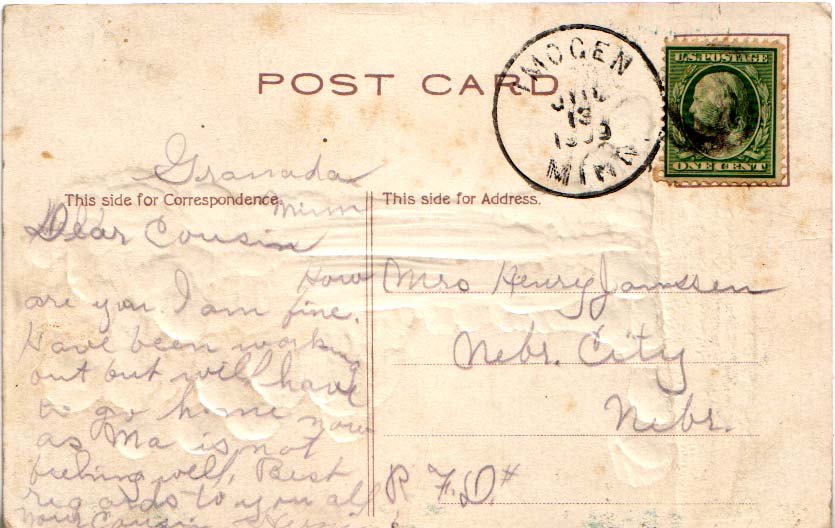 POST CARD
IMOGEN
1909
MINN.
U.S. POSTAGE
ONE CENT
Granada
Minn
This side for Correspondence.
Dear Cousin
How
are you. I am fine.
Have been working
out but will have
to go home now
as Ma is not
feeling well, Best
regards to you all
Your Cousin
This side for Address.
Mrs Henry Janssen
Nebr. City
Nebr.
R F.D.